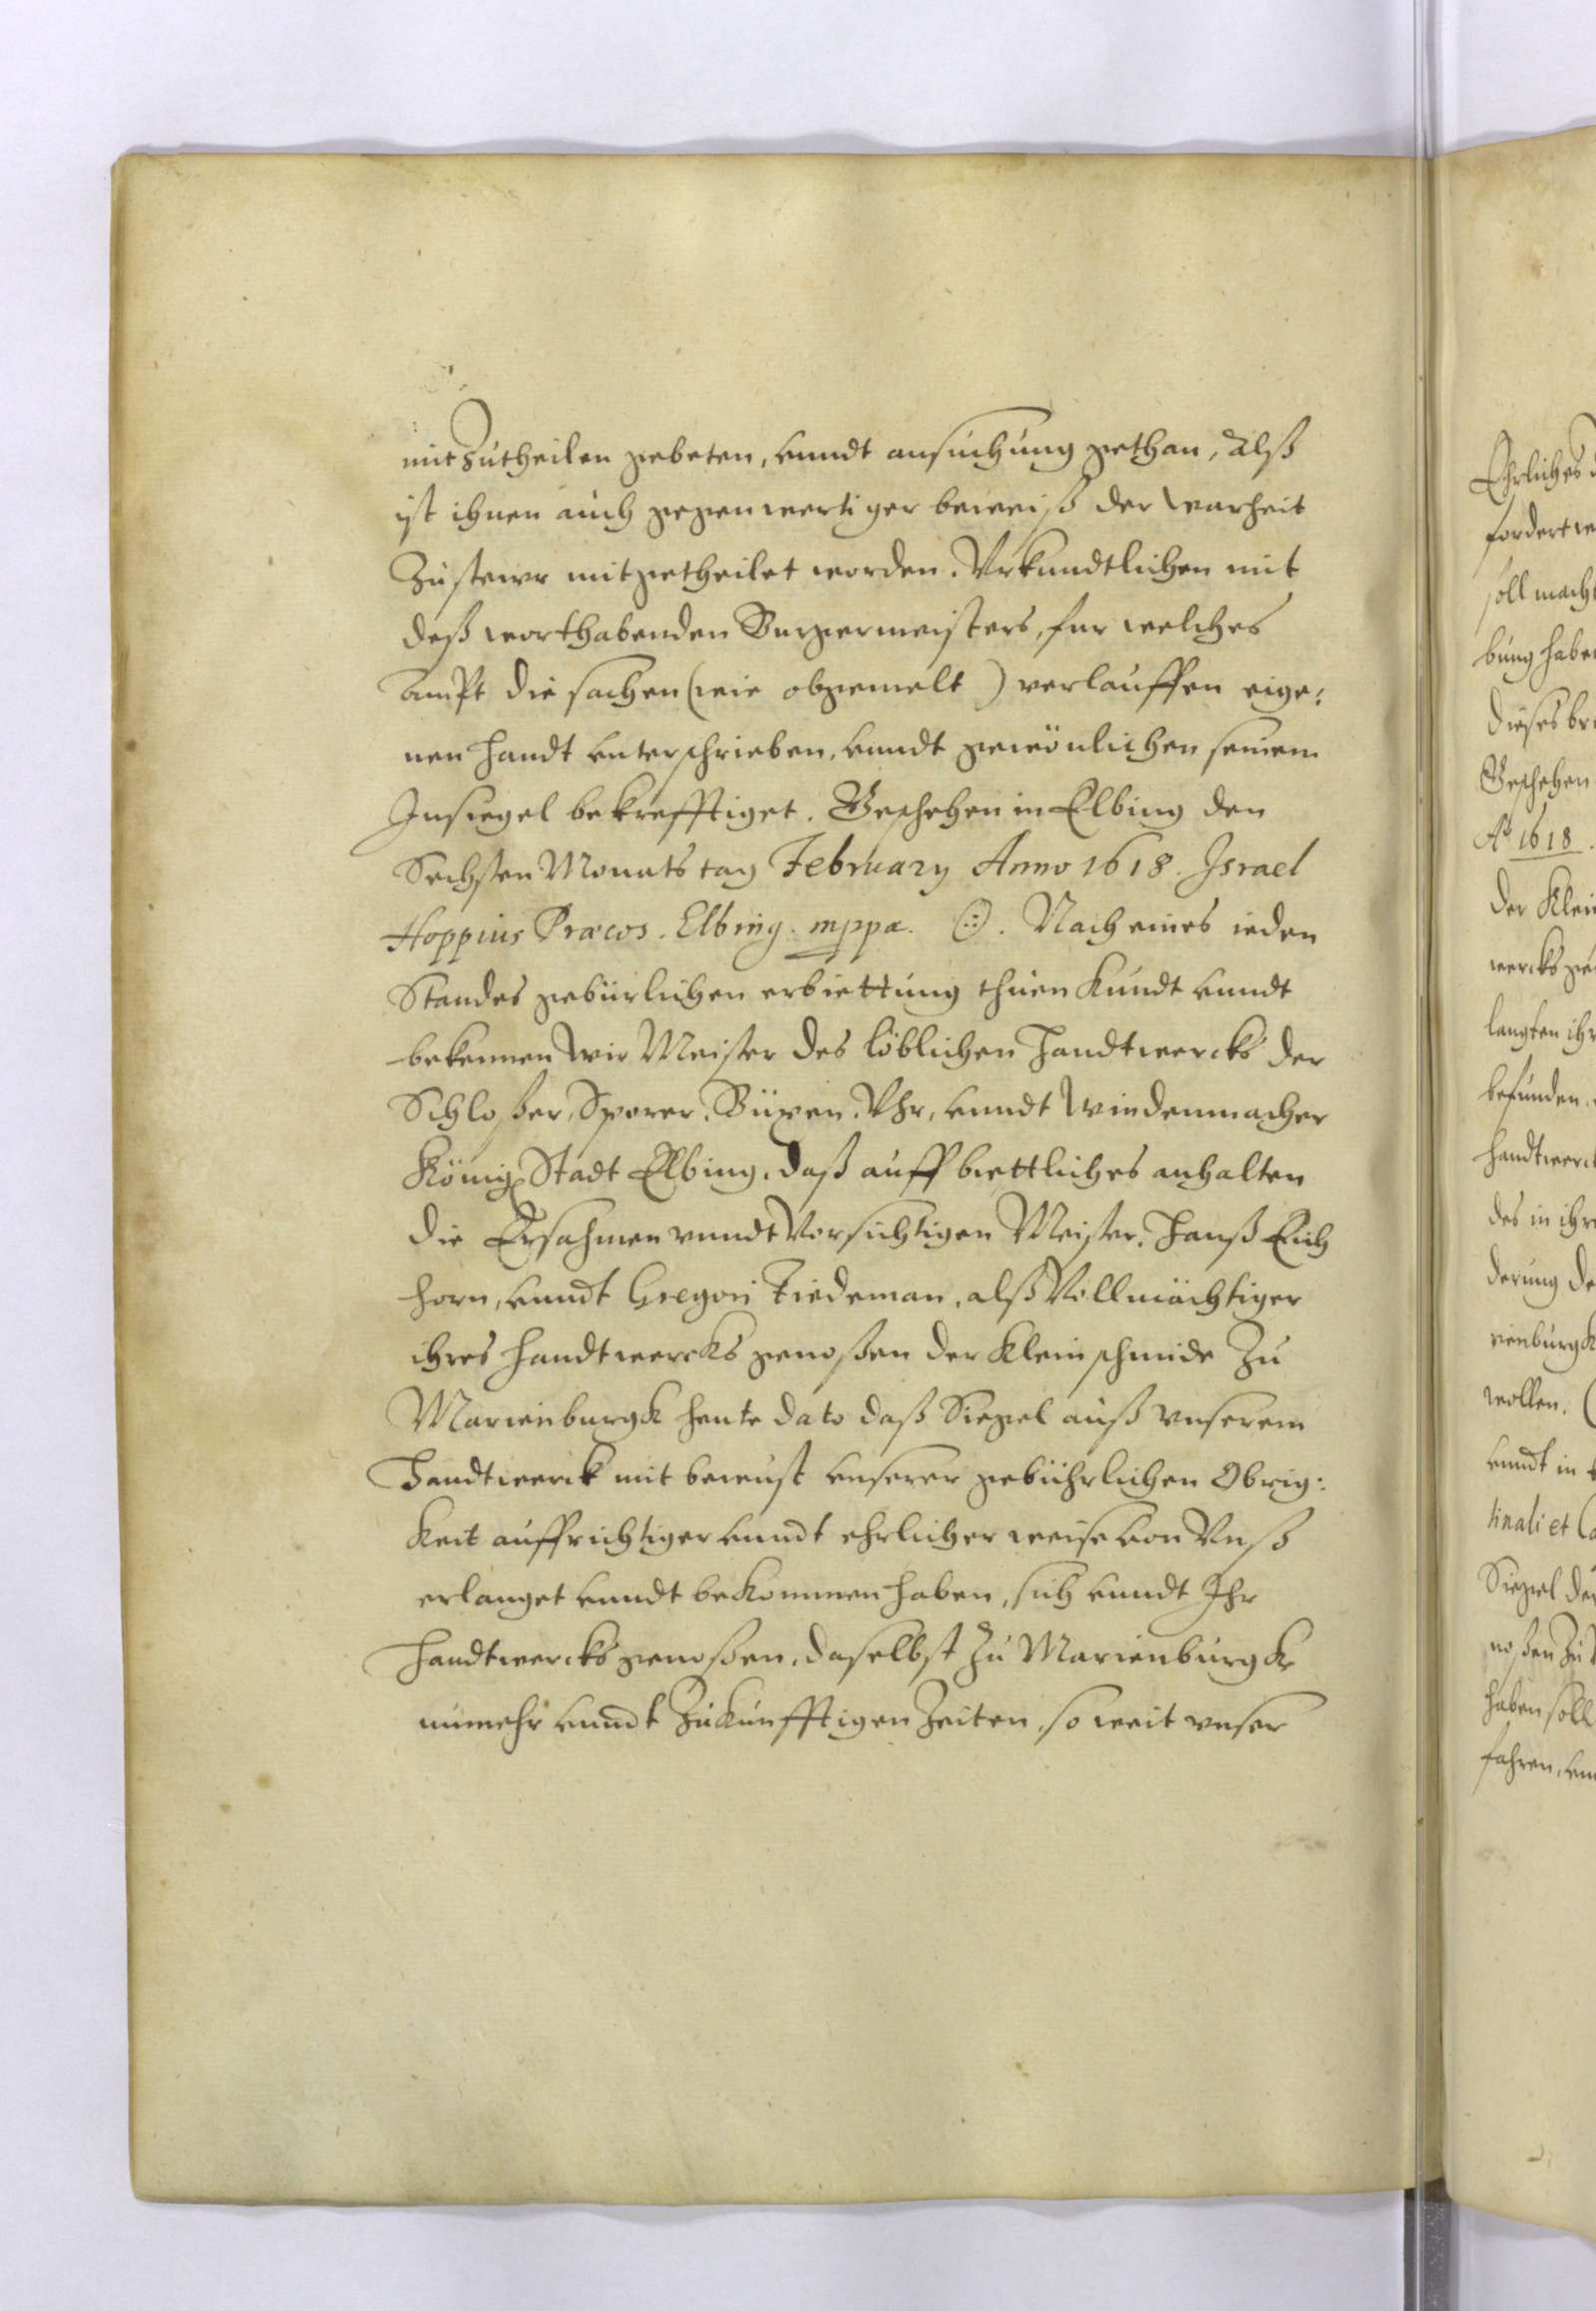 mitzutheilen gebeten, vnndt ansuchung gethan, Alß
ist ihnen auch gegenwertiger beweiß der warheit
Zu stewr mitgetheilet worden. Vrkundtlichen mit
deß worthabenden Burgermeisters, fur welches
Ampt die sachen (wie obgemelt) verlauffen eige:
nen Handt vnterschrieben, vnndt gewönlichen seinem
Insiegel bekrefftiget. Geschehen in Elbing den
Sechsten Monats tag February Anno 1618. Israel
Hoppius Præcos. Elbing. mppa. Nach eines ieden
Standes gebürlichen erbiettung thuen Kundt vnndt
bekennen Wir Meister des löblichen Handtwercks der
Schloßer, Sporer, Büxen, Vhr, vnndt Windenmacher
König Stadt Elbing, daß auff biettliches anhalten
die Ersahmen vnndt Vorsichtigen Meister, Hanß Eich
horn, vnndt Gregori Tiedeman, alß Vollmächtiger
ihres Handtwercks genoßen der Kleinschmide Zu
Marienburgk heute dato daß Siegel auß vnserem
Handtwerck mit bewust vnserer gebührlichen Obrig:
Keit auffrichtiger vnndt ehrlicher weise von Vnß
erlanget vnndt beKommen haben, sich vnndt Ihr
Handtwercks genoßen, daselbst Zu Marienburgk
numehr vnndt ZuKünfftigen Zeiten, so weit vnser
Ehrliches
fordert
soll mach
bung habe
dieses
Geschehen
Ao 1618.
der Klei
wercks
langten ih
befunden
handtwerc
des in ihr
derung de
rienburgk
wollen.
vnndt in
tinali et
Siegel de
noßen Zu
haben soll
fahren,